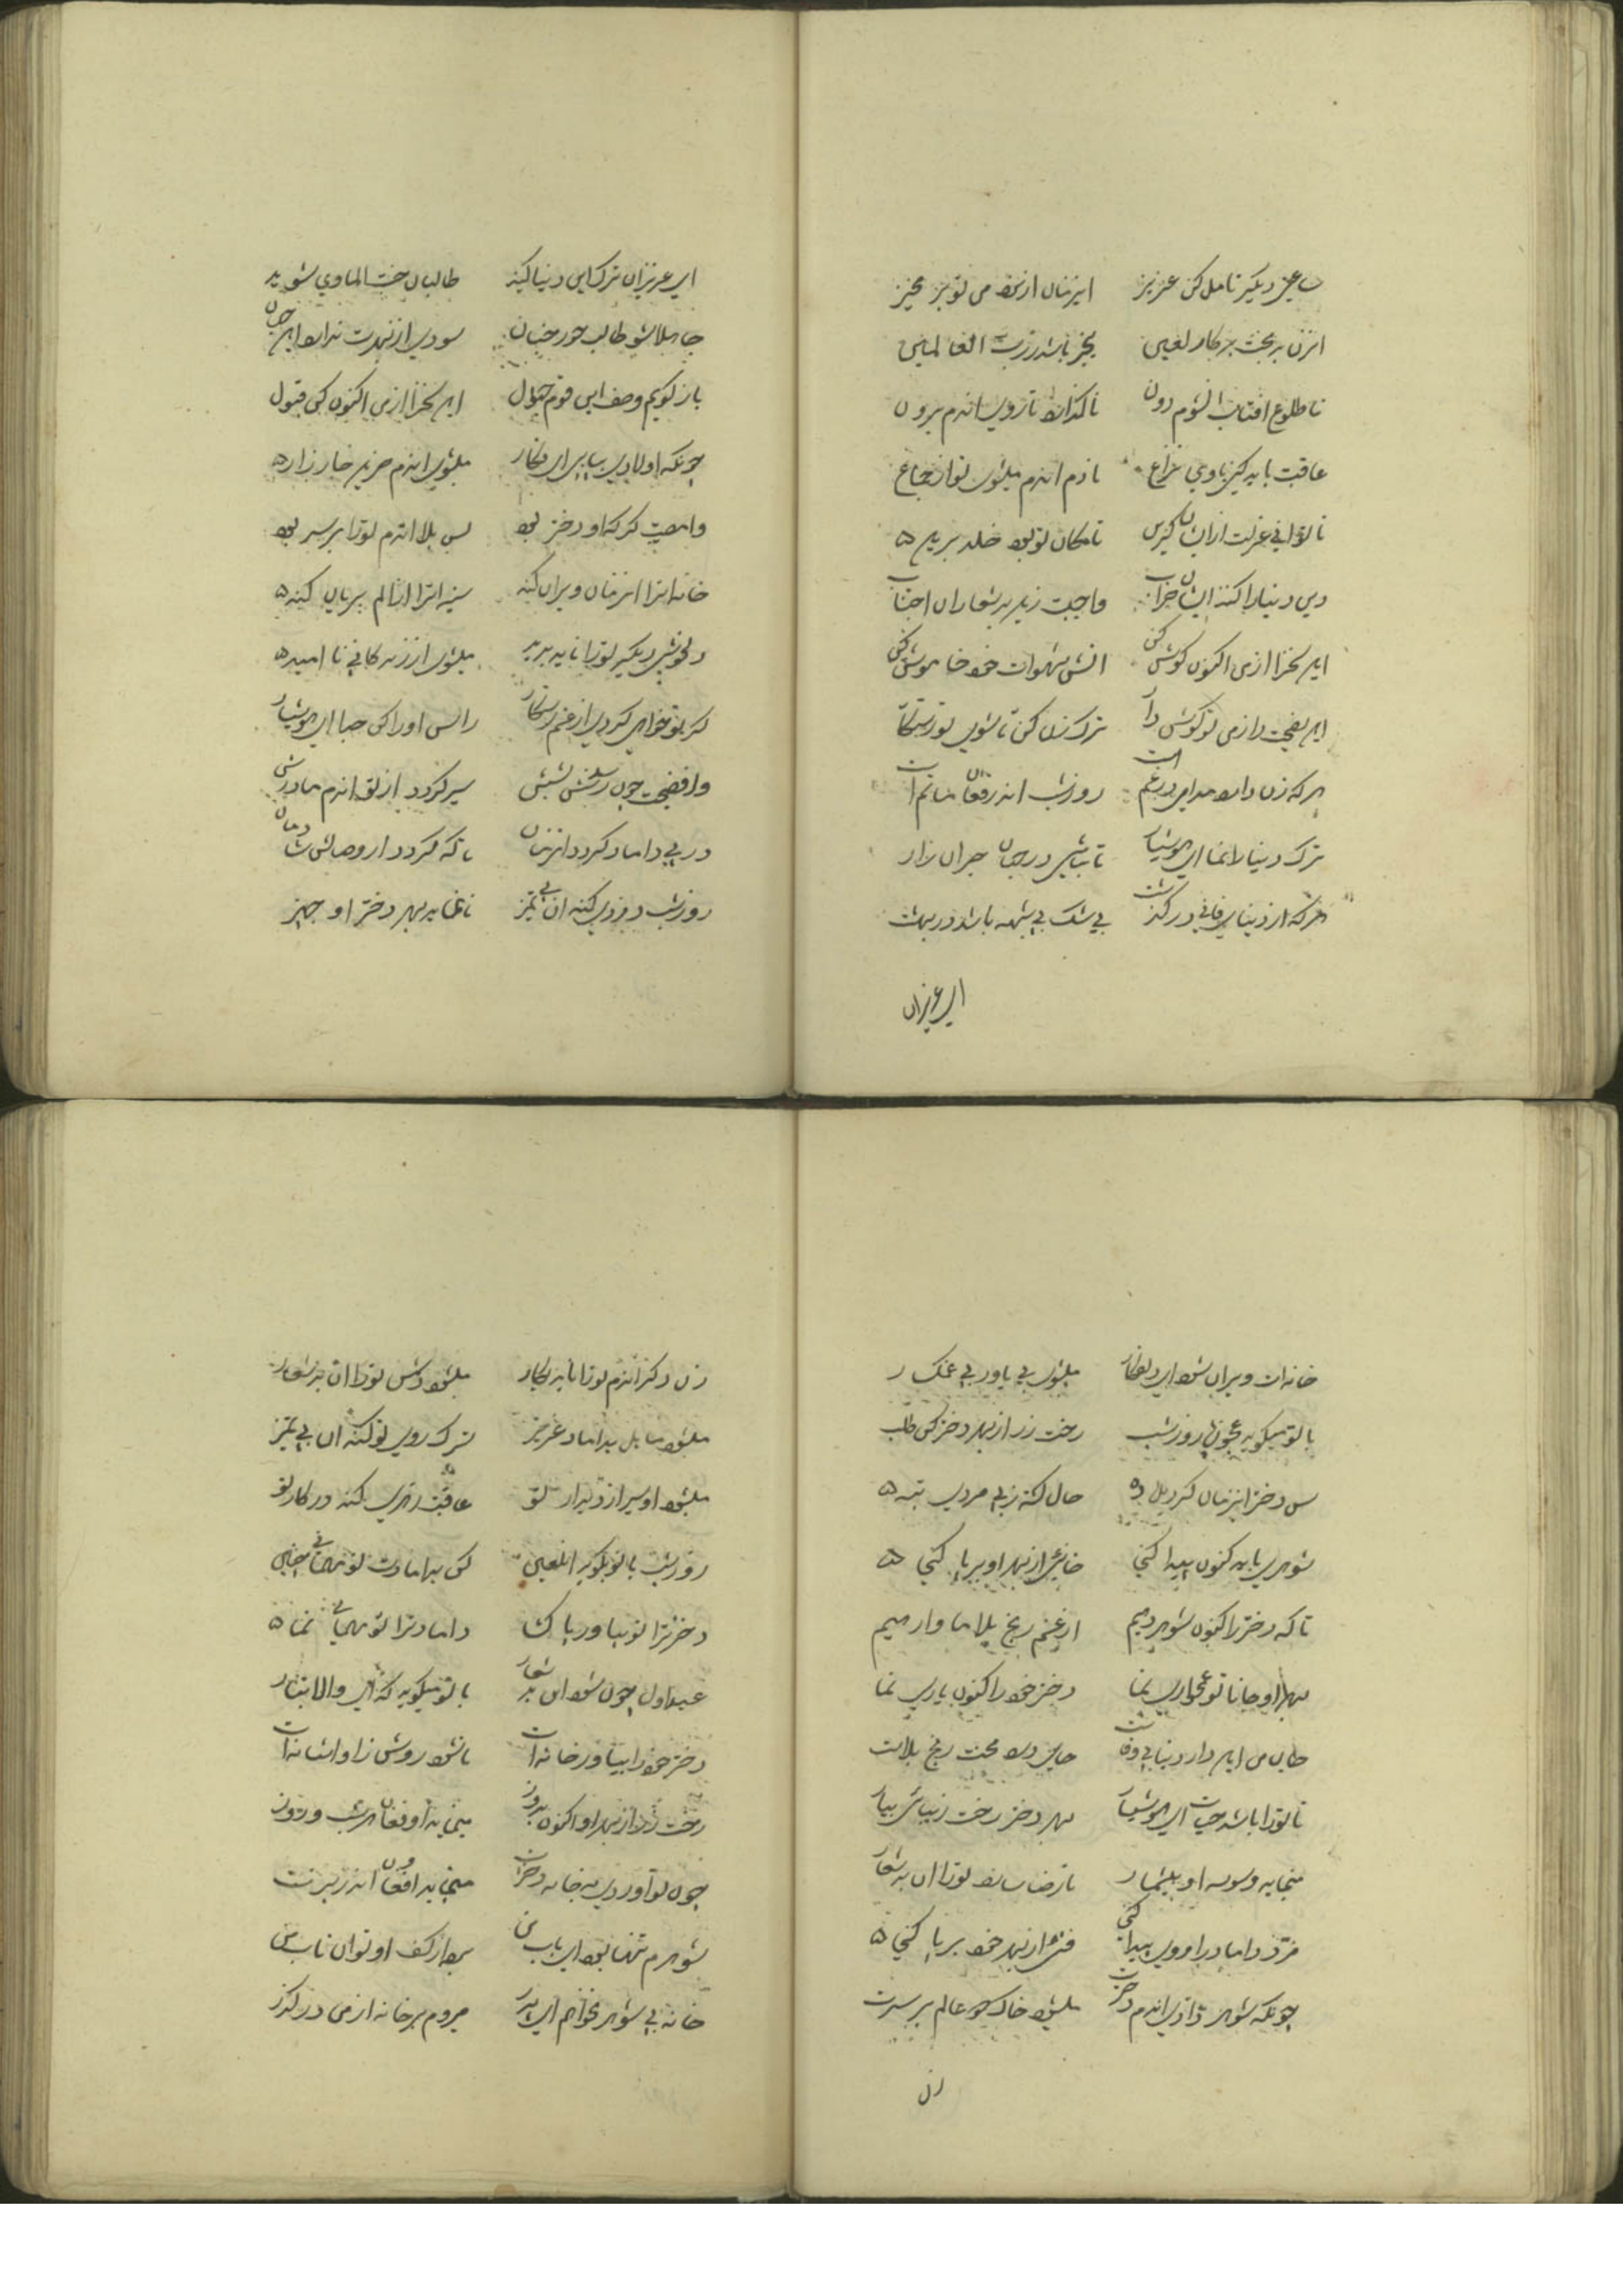 ساعتی دیگر تامل کن عزیز ایزنان از نزد من تو بر مخیز
انزن بدبخت بدکار لعین بخیز باشد زرب العالمین
تا طلوع افتاب انشوم دون نا گذارد تا روی اندم برون
عاقبت باید کنی با وی نزاع نا دم اندم میشوی تو از جماع
تا توانی عزلت ازایشان گزین تا مکان تو بود خلد برین
دین دنیا را کنند ایشان خراب واجبست زین بدشعاران اجتناب
این سخن را از من اکنون گوش کن اتش شهوات خود خاموش کن
این نصیحت را ز من تو گوش دار ترک زن کن تا شوی تو رستگار
هر که زن دارد مدامی در غم است روز شب اندر فغان ماتم است
ترک دنیا را نما ای هوشیار تا نباشی در جهان حیران زار
هر که از دنیای فانی در گذشت بی شک بی شبهه باشد در بهشت
ای عزیزان
ای عزیزان ترک این دنیا کنید طالبان جنت الماوی شوید
جاهلا شو طالب حور جنان سودی از شهرت ندارد این جهان
باز گویم وصف این قوم جهول این سخن را از من اکنون کن قبول
چونکه اولادی بیاید ای فکار میشوی اندم حزین خار زار
وا مصیبت گر که او دختر بود بس بلا اندم تو را بر سر بود
خانه اترا انزنان ویران کند سینه اترا از الم بریان کند
دلخوشی دیگر تو را ناید پدید میشوی از زندگانی نا امید
گر تو خواهی گردی از غم رستگار راس او را کن جدا ای هوشیار
وا فضیحت چون رسد سنش بشش سیر گردد از تو اندم مادرش
در پی داماد گردد انزنان تا که گردد از وصالش شادمان
روز شب دزدی کند ان بی تمیز تا نماید بهر دختر او جهیز
خانه ات ویران شود ای دلفکار میشوی بی یاور بی غمگسار
با تو میگوید عجوزه روز شب رخت زر از بهر دختر کن طلب
سن دختر اینزمان گردیده حال کند زیبی مردی تبه
شوهری باید کنون پیدا کنی خانه‌ئی از بهر او برپا کنی
تا که دختر را کنون شوهر دهیم از غم رنج بلا ما وارهیم
بهر او جانا تو غمخواری نما دختر خود را کنون یاری نما
جان من این دار دنیا بی وفاست جای درد محنت رنج بلاست
تا تو را باشد حیات ای هوشیار بهر دختر رخت زیبائی بیار
مینماید وسوسه او بیشمار تا رضا سازد تو را ان بدشعار
مزد داماد را روی پیدا کنی فتنه از بهر خود برپا کنی
چونکه شوهر دادی اندم دخترت میشود خاک دو عالم بر سرت
زن
زن دگر اندم تو را ناید بکار میشود دشمن تو را ان بدشعار
میشود مایل بداماد عزیز ترک روی تو کند ان بی تمیز
میشود او سیر از دیدار تو عاقبت رندی کند در کار تو
روز شب با تو بگوید انلعین کن بدامادت تو مهمانی چنین
دختر ترا تو بیاور پاک داماد ترا تو مهمانی نما
عید اول چون شود ای بدشعار با تو میگوید که ای والاتبار
دختر خود را بیاور خانه ات تا شود روشن ز او اشانه ات
رخت زر از بهر او اکنون بدوز مینماید او فغان هر شب و روز
چون تو آوردی به خانه دخترت مینماید او فغان اندر برت
شوهرم تنها بود ای باب من برد از کف او توان تاب من
خانه بی شوهر نخواهم ای پدر میروم بر خانه از من در گذر